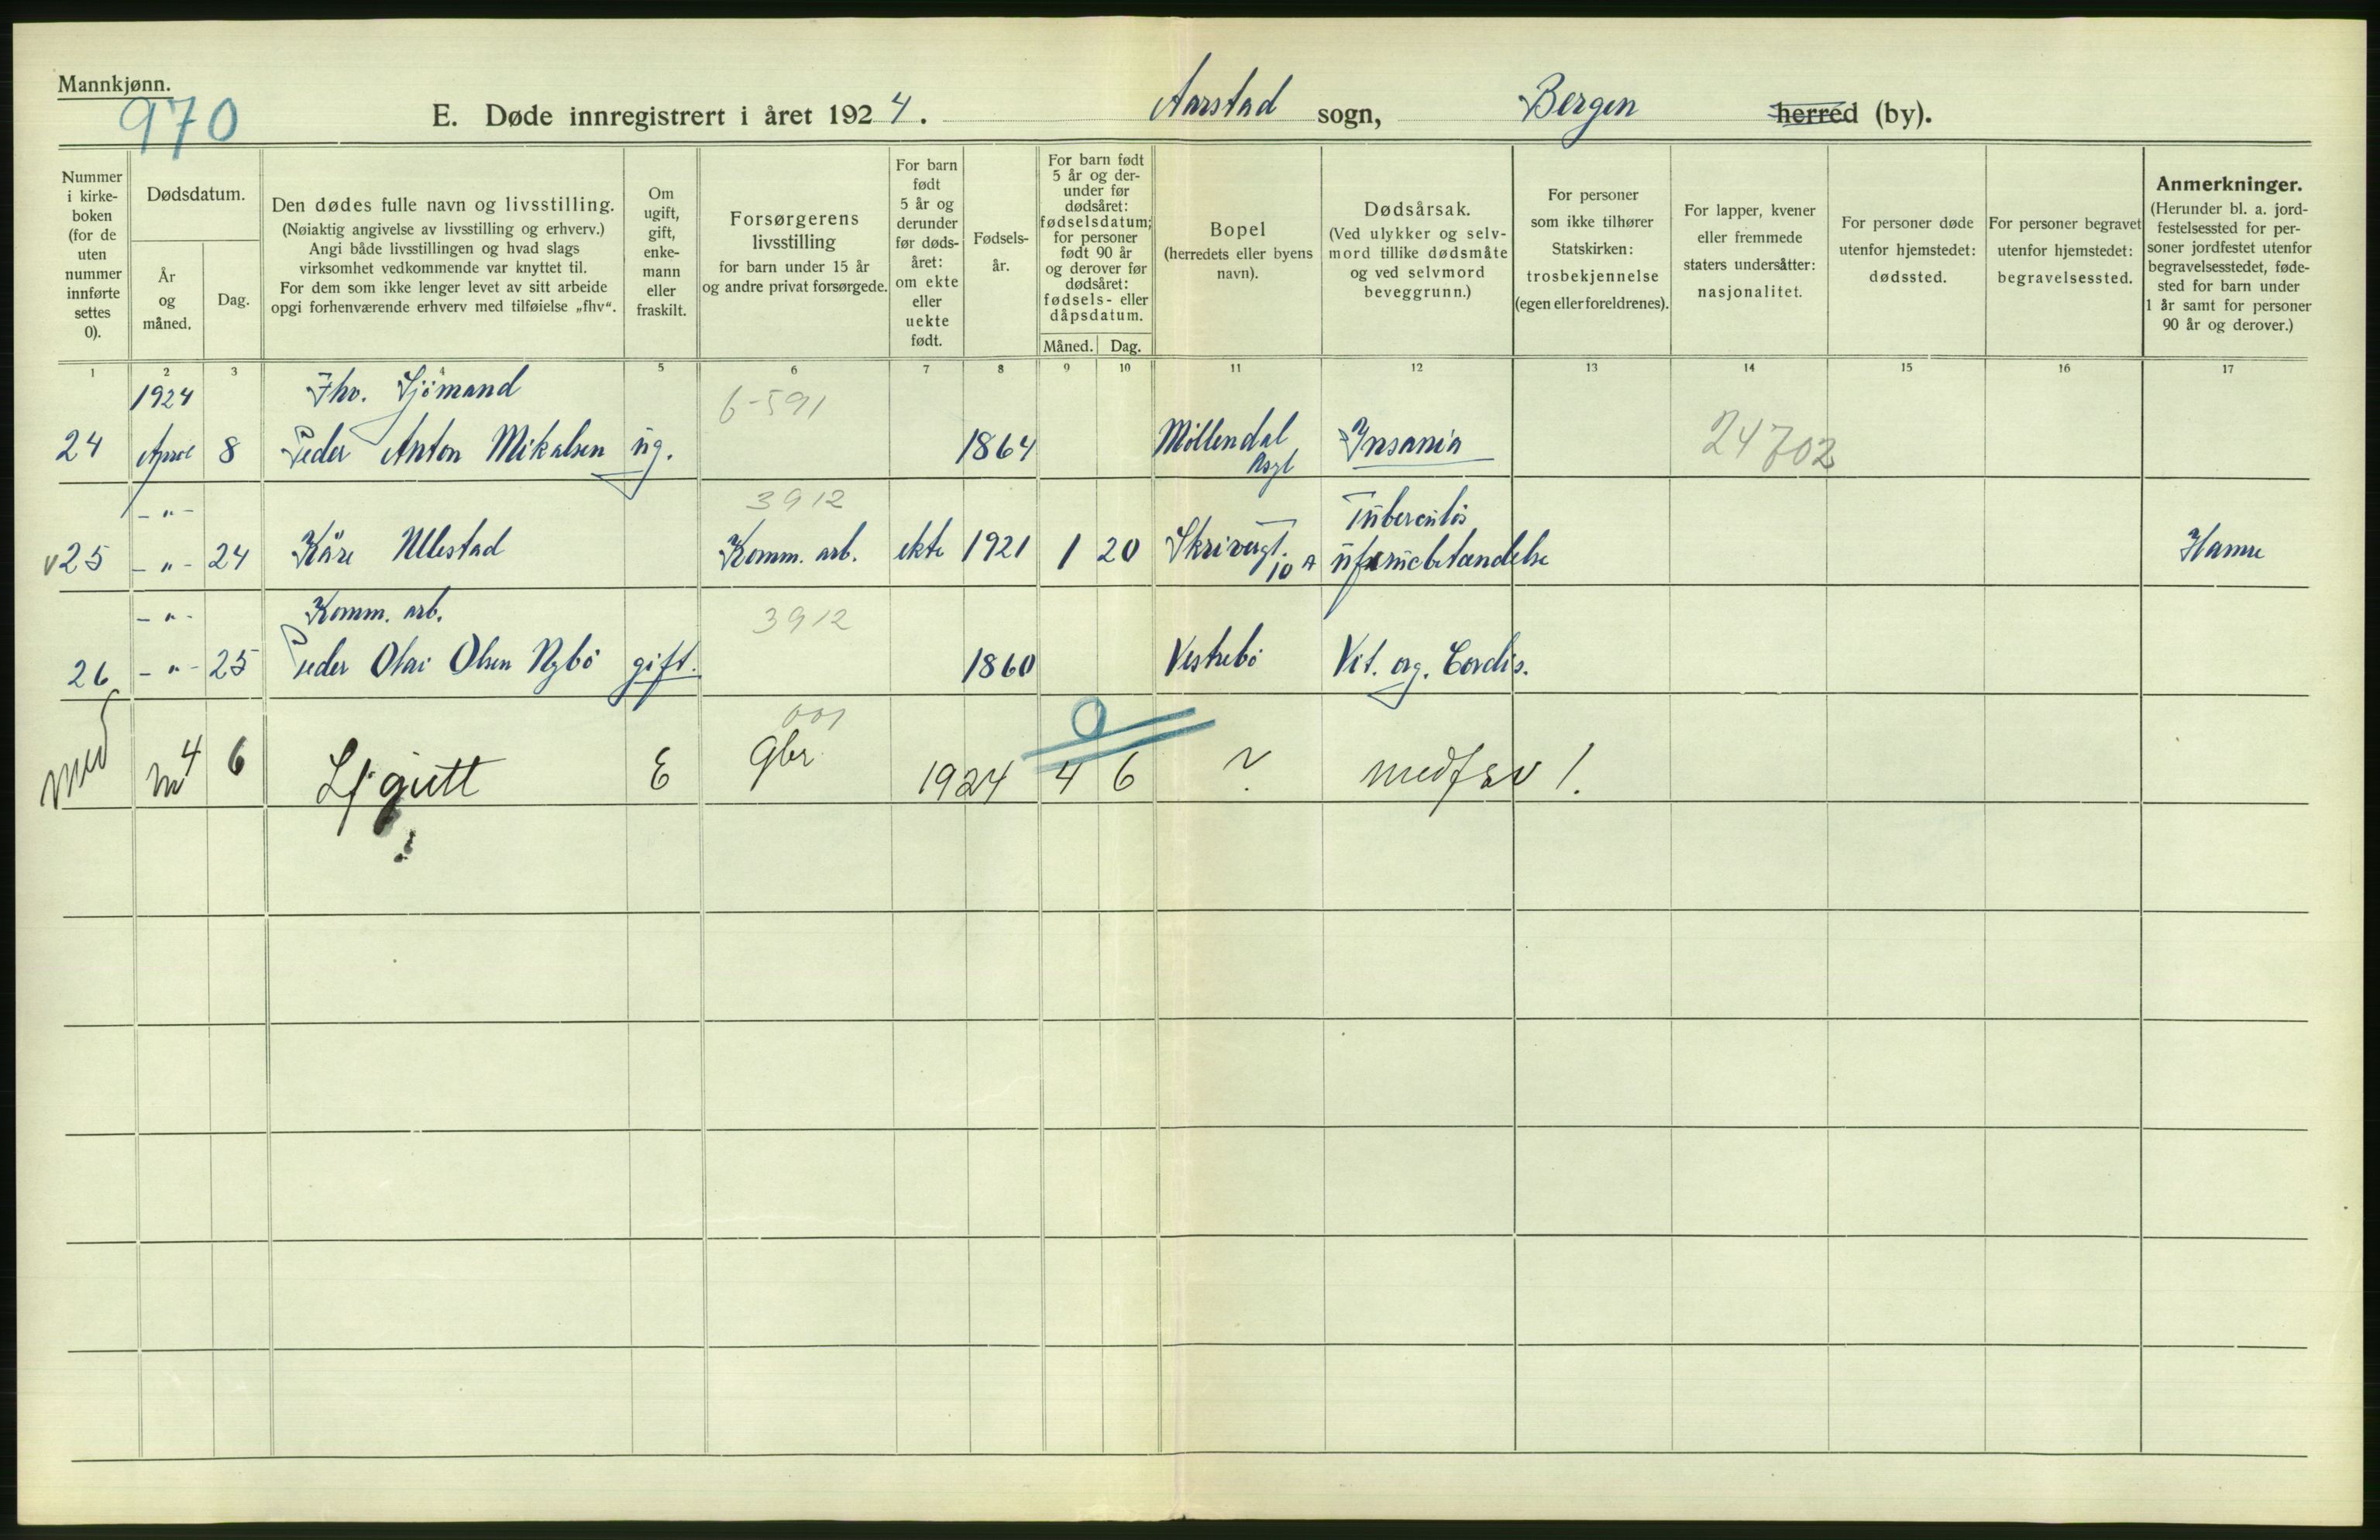 Mannkjønn.
970
E. Døde innregistrert i året 1924. Aarstad sogn, Bergen herred (by).
Nummer i kirke-boken (for de uten nummer innførte settes 0).
Dødsdatum.
År og måned.
Dag.
Den dødes fulle navn og livsstilling.
(Nøiaktig angivelse av livsstilling og erhverv.)
Angi både livsstillingen og hvad slags
virksomhet vedkommende var knyttet til.
For dem som ikke lenger levet av sitt arbeide
opgi forhenværende erhverv med tilføielse „fhv“.
Om ugift, gift, enke-mann eller fraskilt.
Forsørgerens livsstilling
for barn under 15 år
og andre privat forsørgede.
For barn født 5 år og derunder før døds-året: om ekte eller uekte født.
Fødsels-år.
For barn født 5 år og der-under før dødsåret: fødselsdatum; for personer født 90 år og derover før dødsåret: fødsels- eller dåpsdatum.
Måned. Dag.
Bopel
(herredets eller byens navn).
Dødsårsak.
(Ved ulykker og selv-mord tillike dødsmåte og ved selvmord beveggrunn.)
For personer som ikke tilhører Statskirken: trosbekjennelse (egen eller foreldrenes).
For lapper, kvener eller fremmede staters undersåtter: nasjonalitet.
For personer døde utenfor hjemstedet: dødssted.
For personer begravet utenfor hjemstedet: begravelsessted.
Anmerkninger.
(Herunder bl. a. jord-festelsessted for per-soner jordfestet utenfor begravelsesstedet, føde-sted for barn under 1 år samt for personer 90 år og derover.)
1 2 3 4 5 6 7 8 9 10 11 12 13 14 15 16 17
1924 Fhv. Sjömand 6-591
24 April 8 Peder Anton Mikalsen ug. 1864 Möllendal Asyl Insania 24702
- " - 3912 Tuberculös
v 25 - " - 24 Kåre Ullestad Komm. arb. ekte 1921 1 20 Skrivergt. 10 A Hamre
- " - Komm. arb. 3912
26 - " - 25 Peder Olai Olsen Nybö gift. 1860 Vestrebö Vit. org. Cordis.
001 0
med m 4 6 Lf gutt E gbr 1924 4 6 ? medf sv 1.